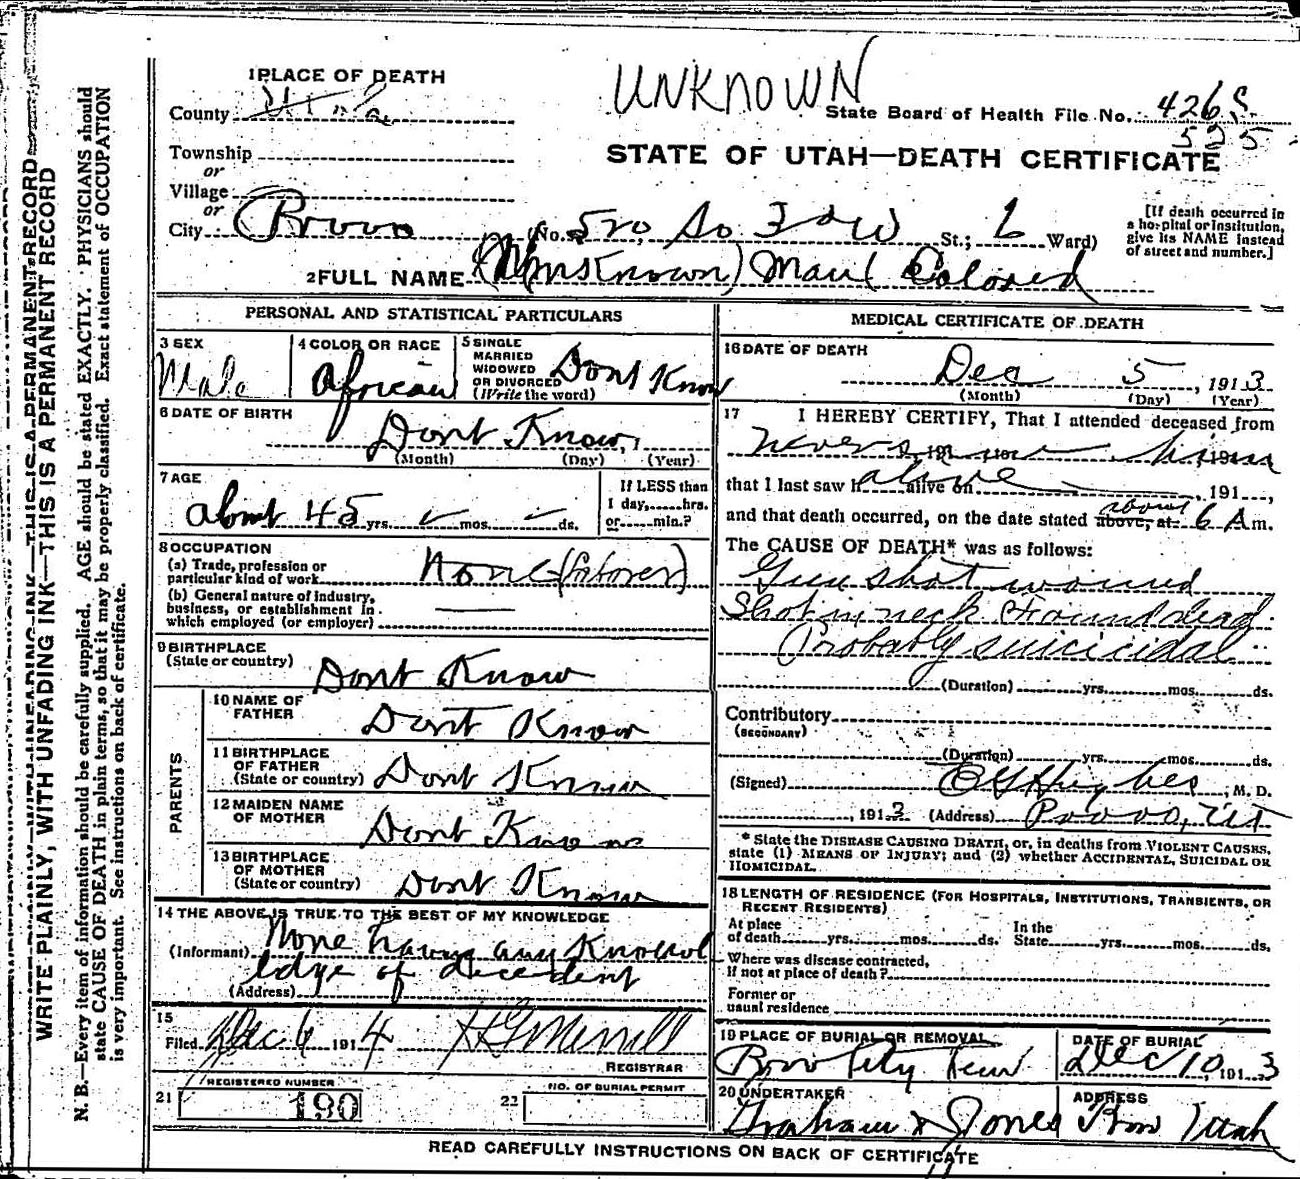 UNKNOWN
1 PLACE OF DEATH
County Utah
State Board of Health File No. 426
525
Township
or
STATE OF UTAH—DEATH CERTIFICATE
Village
or
City Provo (No. 520 So 3d W St.; 6 Ward)
[If death occurred in
a hospital or institution,
give its NAME instead
of street and number.]
2 FULL NAME (Unknown) Man Colored
PERSONAL AND STATISTICAL PARTICULARS
3 SEX
Male
4 COLOR OR RACE
African
5 SINGLE
MARRIED
WIDOWED
OR DIVORCED
(Write the word)
Dont Know
6 DATE OF BIRTH
Dont Know
(Month) (Day) (Year)
7 AGE
about 45 yrs. mos. ds.
If LESS than
1 day, hrs.
or min.?
8 OCCUPATION
(a) Trade, profession or
particular kind of work None (laborer)
(b) General nature of industry,
business, or establishment in
which employed (or employer)
9 BIRTHPLACE
(State or country)
Dont Know
PARENTS
10 NAME OF
FATHER
Dont Know
11 BIRTHPLACE
OF FATHER
(State or country) Dont Know
12 MAIDEN NAME
OF MOTHER
Dont Know
13 BIRTHPLACE
OF MOTHER
(State or country) Dont Know
14 THE ABOVE IS TRUE TO THE BEST OF MY KNOWLEDGE
(Informant) None having any Knowl
edge of decedent
(Address)
15
Filed Dec 6 1914 H G Merrill
REGISTRAR
REGISTERED NUMBER
21 190
NO. OF BURIAL PERMIT
22
MEDICAL CERTIFICATE OF DEATH
16 DATE OF DEATH
Dec 5, 1913
(Month) (Day) (Year)
17 I HEREBY CERTIFY, That I attended deceased from
never saw him
that I last saw h alive alive on , 191 ,
and that death occurred, on the date stated above, at about 6 A m.
The CAUSE OF DEATH* was as follows:
Gun shot wound
Shot in neck & found dead
Probably suicidal
(Duration) yrs. mos. ds.
Contributory
(SECONDARY)
(Duration) yrs. mos. ds.
(Signed) Hughes, M. D.
, 1913 (Address) Provo, Ut
* State the DISEASE CAUSING DEATH, or, in deaths from VIOLENT CAUSES,
state (1) MEANS OF INJURY; and (2) whether ACCIDENTAL, SUICIDAL OR
HOMICIDAL.
18 LENGTH OF RESIDENCE (FOR HOSPITALS, INSTITUTIONS, TRANSIENTS, OR
RECENT RESIDENTS)
At place
of death yrs. mos. ds.
In the
State yrs. mos. ds.
Where was disease contracted,
if not at place of death?
Former or
usual residence
19 PLACE OF BURIAL OR REMOVAL
Prov City Cem
DATE OF BURIAL
Dec 10, 1913
20 UNDERTAKER
Graham & Jones
ADDRESS
Prov Utah
READ CAREFULLY INSTRUCTIONS ON BACK OF CERTIFICATE
WRITE PLAINLY, WITH UNFADING INK—THIS IS A PERMANENT RECORD
N. B.—Every item of information should be carefully supplied. AGE should be stated EXACTLY. PHYSICIANS should
state CAUSE OF DEATH in plain terms, so that it may be properly classified. Exact statement of OCCUPATION
is very important. See instructions on back of certificate.